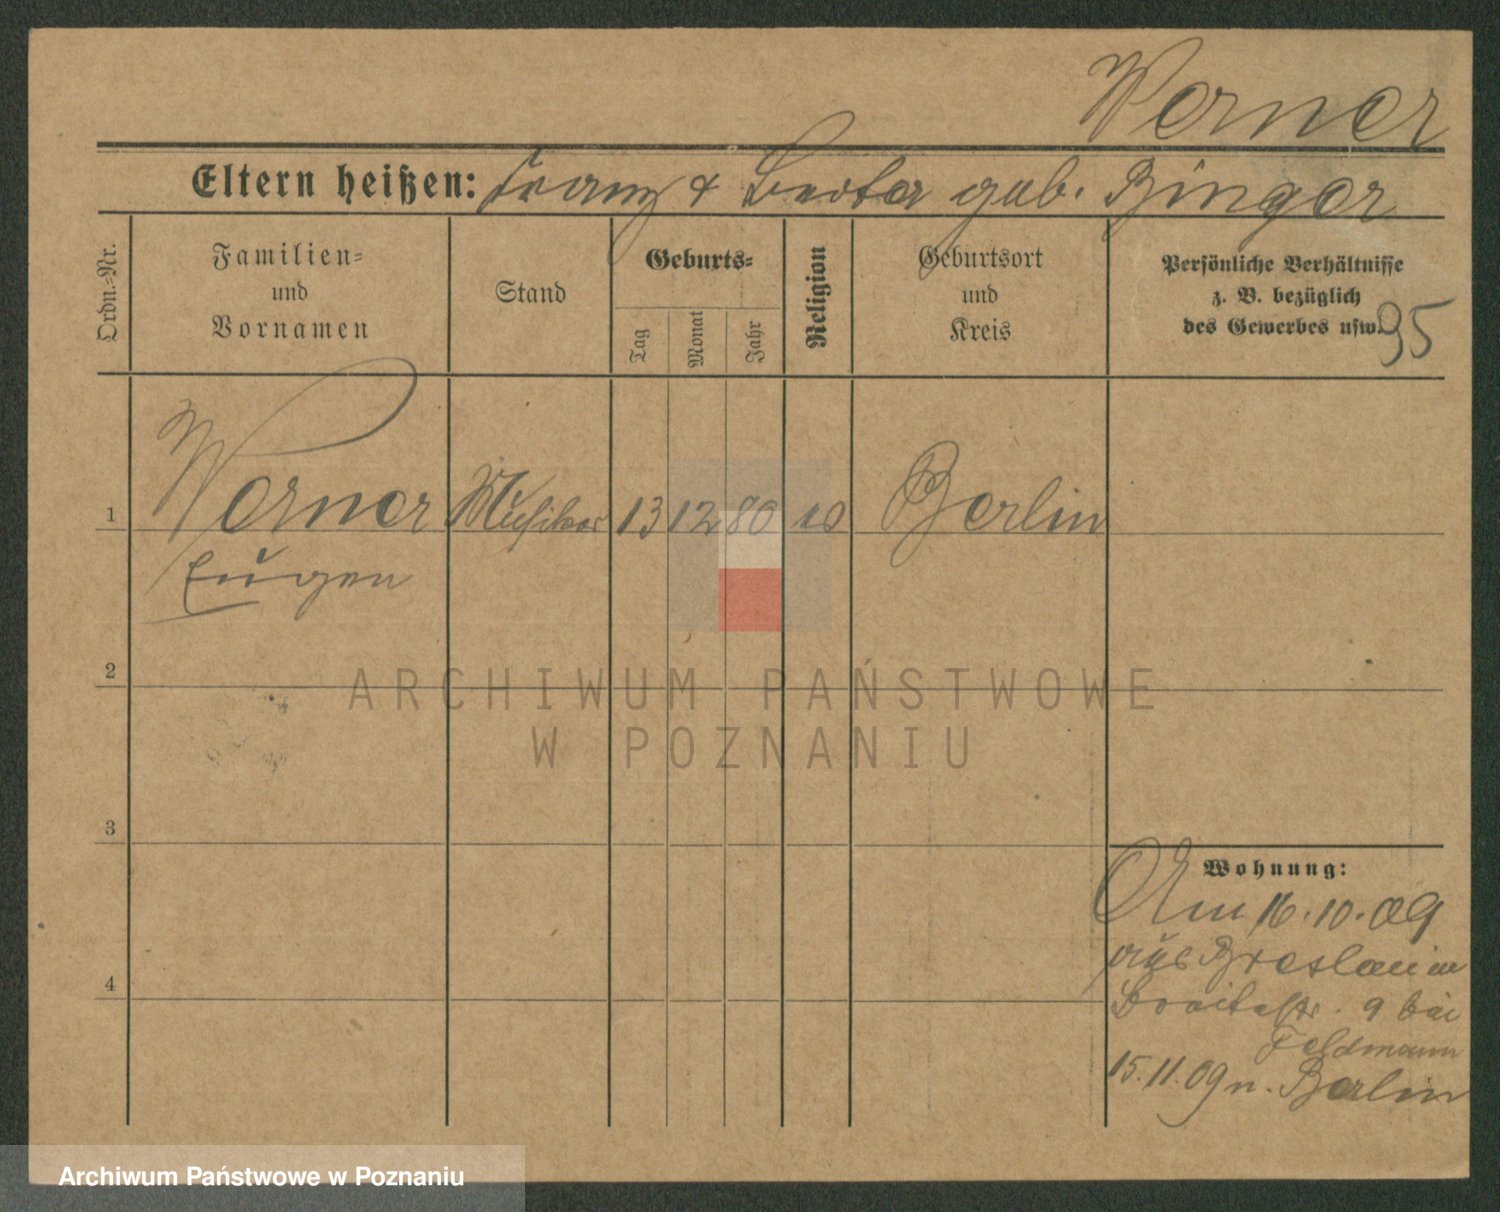 Werner
Eltern heißen: Franz & Berta geb. Binger
Ordn.-Nr.
Familien-
und
Vornamen
Stand
Geburts-
Tag
Monat
Jahr
Religion
Geburtsort
und
Kreis
Persönliche Verhältnisse
z. B. bezüglich
des Gewerbes usw.
95
1 Werner Musiker 13 12 80 Berlin
Eugen
2
3
4
Wohnung:
Am 16.10.09
aus Breslau in
Breitestr. 9 bei
Feldmann
15.11.09 n. Berlin
ARCHIWUM PAŃSTWOWE
W POZNANIU
Archiwum Państwowe w Poznaniu